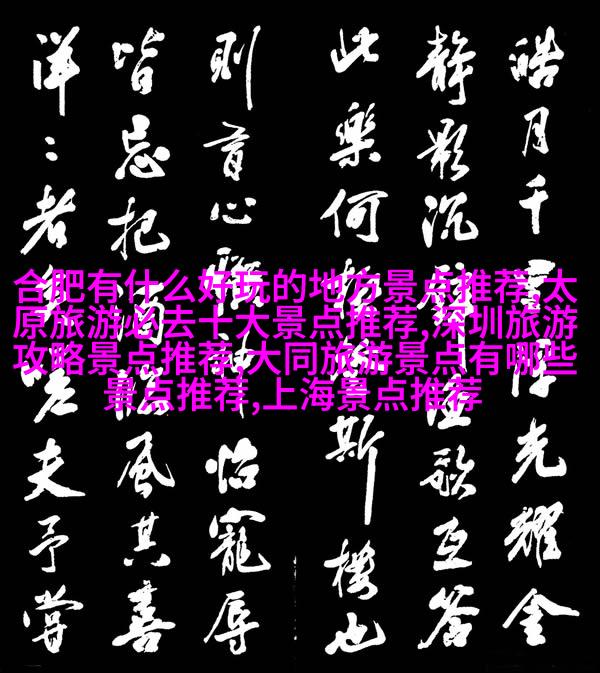 合肥有什么好玩的地方景点推荐,太
原旅游必去十大景点推荐,深圳旅游
攻略景点推荐,大同旅游景点有哪些
景点推荐,上海景点推荐
皓月千里浮光耀金
静影沉璧渔歌互答
此樂何極登斯樓也
則有心曠神怡寵辱
皆忘把酒臨風其喜
洋:者矣嗟夫予嘗